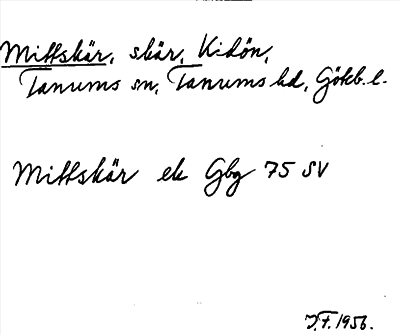 Mittskär, skär, Kidön,
Tanums sn, Tanums hd, Götb. l.
Mittskär ek Gbg 75 SV
J.F. 1956.